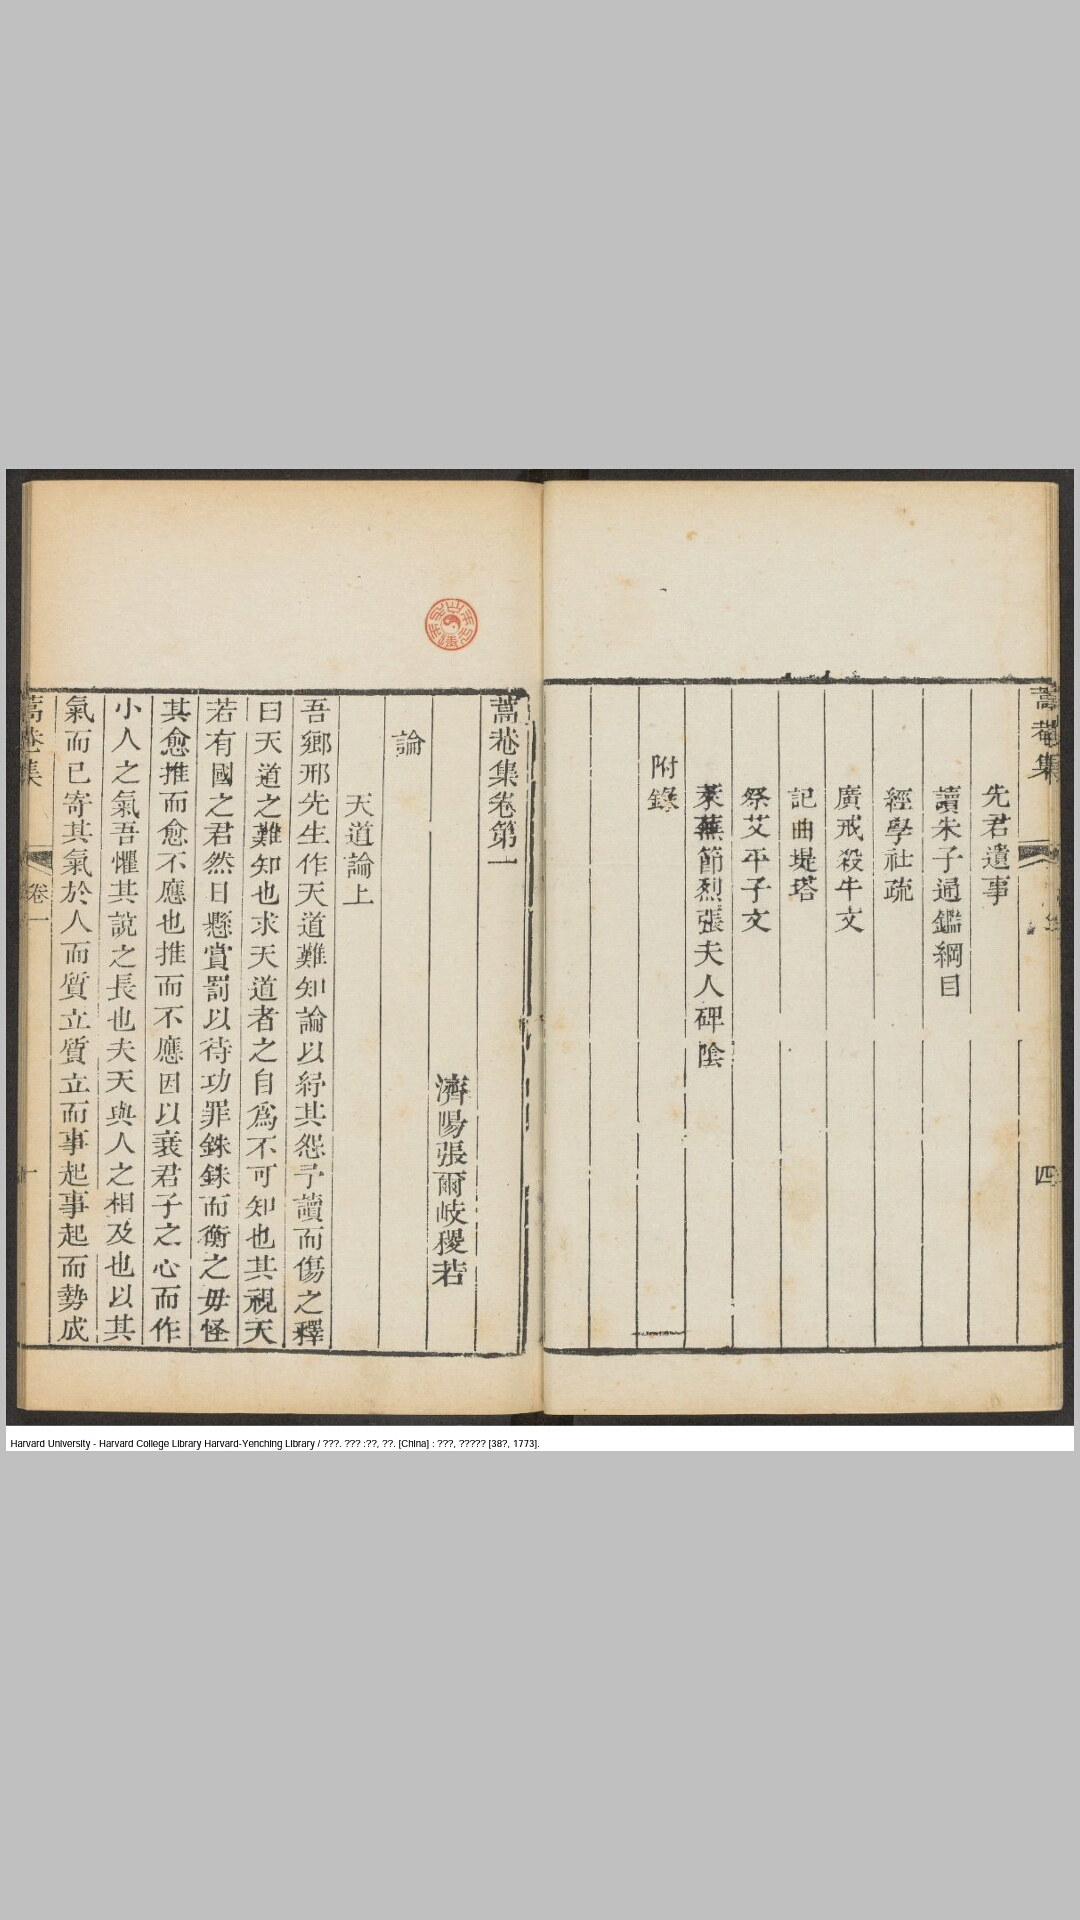 蒿菴集
四
先君遺事
讀朱子通鑑綱目
經學社疏
廣戒殺牛文
記曲堤塔
祭艾平子文
萊蕪節烈張夫人碑陰
附錄
蒿菴集卷第一
濟陽張爾岐稷若
論
天道論上
吾鄉邢先生作天道難知論以紓其怨予讀而傷之釋
曰天道之難知也求天道者之自爲不可知也其視天
若有國之君然日懸賞罰以待功罪銖銖而衡之毋怪
其愈推而愈不應也推而不應因以衰君子之心而作
小人之氣吾懼其說之長也夫天與人之相及也以其
氣而已寄其氣於人而質立質立而事起事起而勢成
蒿菴集
卷一
一
Harvard University - Harvard College Library Harvard-Yenching Library / ???. ??? :??, ??. [China] : ???, ????? [38?, 1773].